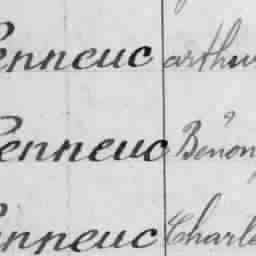 enneuc arthur
Penneuc Bénony
enneuc Charles